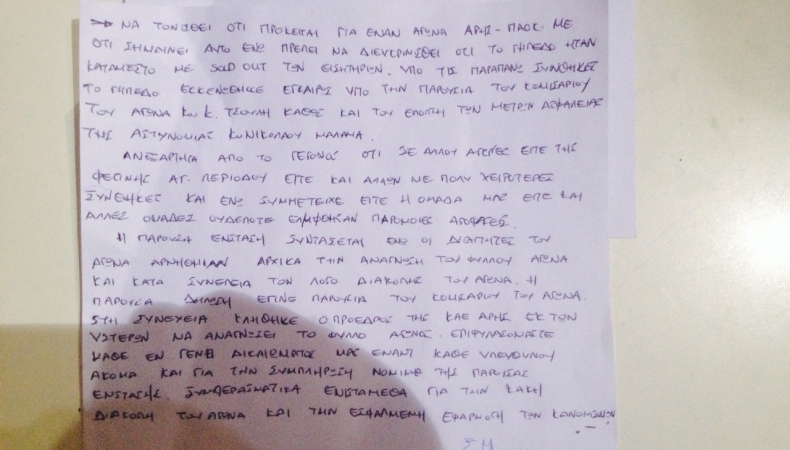 → ΝΑ ΤΟΝΙΣΘΕΙ ΟΤΙ ΠΡΟΚΕΙΤΑΙ ΓΙΑ ΕΝΑΝ ΑΓΩΝΑ ΑΡΗΣ-ΠΑΟΚ ΜΕ
ΟΤΙ ΣΗΜΑΙΝΕΙ ΑΥΤΟ ΕΝΩ ΠΡΕΠΕΙ ΝΑ ΔΙΕΥΚΡΙΝΙΣΘΕΙ ΟΤΙ ΤΟ ΓΗΠΕΔΟ ΗΤΑΝ
ΚΑΤΑΜΕΣΤΟ ΜΕ SOLD OUT ΤΩΝ ΕΙΣΗΤΗΡΙΩΝ. ΥΠΟ ΤΙΣ ΠΑΡΑΠΑΝΩ ΣΥΝΘΗΚΕΣ
ΤΟ ΓΗΠΕΔΟ ΕΚΚΕΝΩΘΗΚΕ ΕΓΚΑΙΡΩΣ ΥΠΟ ΤΗΝ ΠΑΡΟΥΣΙΑ ΤΟΥ ΚΟΜΙΣΑΡΙΟΥ
ΤΟΥ ΑΓΩΝΑ Κου Κ. ΤΣΟΥΛΗ ΚΑΘΩΣ ΚΑΙ ΤΟΥ ΕΠΟΠΤΗ ΤΩΝ ΜΕΤΡΩΝ ΑΣΦΑΛΕΙΑΣ
ΤΗΣ ΑΣΤΥΝΟΜΙΑΣ Κου ΝΙΚΟΛΑΟΥ
ΑΝΕΞΑΡΤΗΤΑ ΑΠΟ ΤΟ ΓΕΓΟΝΟΣ ΟΤΙ ΣΕ ΑΛΛΟΥ ΑΓΩΝΕΣ ΕΙΤΕ ΤΗΣ
ΦΕΤΙΝΗΣ ΑΓ. ΠΕΡΙΟΔΟΥ ΕΙΤΕ ΚΑΙ ΑΛΛΩΝ ΜΕ ΠΟΛΥ ΧΕΙΡΟΤΕΡΕΣ
ΣΥΝΘΗΚΕΣ ΚΑΙ ΕΝΩ ΣΥΜΜΕΤΕΙΧΕ ΕΙΤΕ Η ΟΜΑΔΑ ΜΑΣ ΕΙΤΕ ΚΑΙ
ΑΛΛΕΣ ΟΜΑΔΕΣ ΟΥΔΕΠΟΤΕ ΕΛΗΦΘΗΣΑΝ ΠΑΡΟΜΟΙΕΣ ΑΠΟΦΑΣΕΙΣ.
Η ΠΑΡΟΥΣΑ ΕΝΣΤΑΣΗ ΣΥΝΤΑΣΣΕΤΑΙ ΕΝΩ ΟΙ ΔΙΑΙΤΗΤΕΣ ΤΟΥ
ΑΓΩΝΑ ΑΡΝΗΘΗΚΑΝ ΑΡΧΙΚΑ ΤΗΝ ΑΝΑΓΝΩΣΗ ΤΟΥ ΦΥΛΛΟΥ ΑΓΩΝΑ
ΚΑΙ ΚΑΤΑ ΣΥΝΕΠΕΙΑ ΤΟΝ ΛΟΓΟ ΔΙΑΚΟΠΗΣ ΤΟΥ ΑΓΩΝΑ. Η
ΠΑΡΟΥΣΑ ΔΗΛΩΣΗ ΕΓΙΝΕ ΠΑΡΟΥΣΙΑ ΤΟΥ ΚΟΜΙΣΑΡΙΟΥ ΤΟΥ ΑΓΩΝΑ.
ΣΤΗ ΣΥΝΕΧΕΙΑ ΚΛΗΘΗΚΕ Ο ΠΡΟΕΔΡΟΣ ΤΗΣ ΚΑΕ ΑΡΗΣ ΕΚ ΤΩΝ
ΥΣΤΕΡΩΝ ΝΑ ΑΝΑΓΝΩΣΕΙ ΤΟ ΦΥΛΛΟ ΑΓΩΝΟΣ. ΕΠΙΦΥΛΑΣΟΜΑΣΤΕ
ΚΑΘΕ ΕΝ ΓΕΝΕΙ ΔΙΚΑΙΩΜΑΤΟΣ ΜΑΣ ΕΝΑΝΤΙ ΚΑΘΕ ΥΠΕΥΘΥΝΟΥ
ΑΚΟΜΑ ΚΑΙ ΓΙΑ ΤΗΝ ΣΥΜΠΛΗΡΩΣΗ ΝΟΜΙΜΑ ΤΗΣ ΠΑΡΟΥΣΑΣ
ΕΝΣΤΑΣΗΣ. ΣΥΜΠΕΡΑΣΜΑΤΙΚΑ ΕΝΙΣΤΑΜΕΘΑ ΓΙΑ ΤΗΝ ΚΑΚΗ
ΔΙΑΚΟΠΗ ΤΟΥ ΑΓΩΝΑ ΚΑΙ ΤΗΝ ΕΣΦΑΛΜΕΝΗ ΕΦΑΡΜΟΓΗ ΤΩΝ ΚΑΝΟΝΙΣΜΩΝ